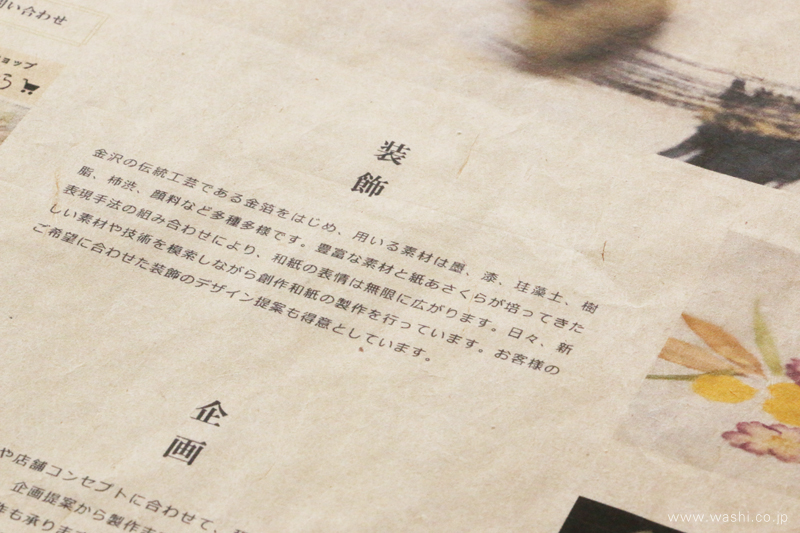 い合わせ
ョップ
装
飾
金沢の伝統工芸である金箔をはじめ、用いる素材は墨、漆、珪藻土、樹
脂、柿渋、顔料など多種多様です。豊富な素材と紙あさくらが培ってきた
表現手法の組み合わせにより、和紙の表情は無限に広がります。日々、新
しい素材や技術を模索しながら創作和紙の製作を行っています。お客様の
ご希望に合わせた装飾のデザイン提案も得意としています。
企
画
や店舗コンセプトに合わせて、
企画提案から製作ま
も承りま
www.washi.co.jp